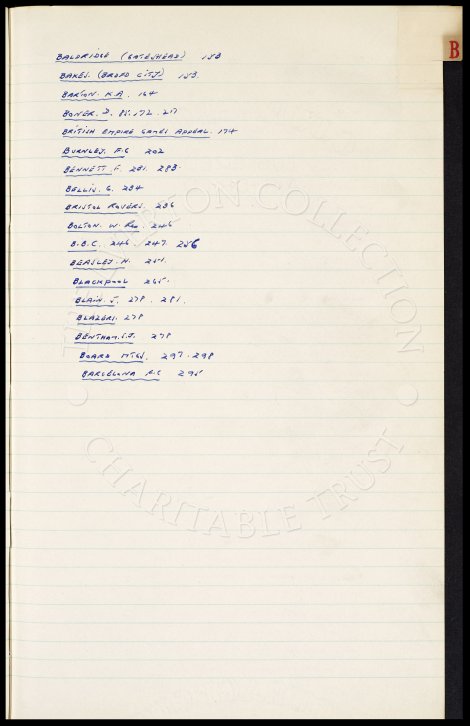 B
BALDRIDGE (GATESHEAD) 153
BAKES. (BRADFD CITY) 153.
BARTON. K.A. 164
BONER. D. 85. 172. 217
BRITISH EMPIRE GAMES APPEAL. 174
BURNLEY. F.C 202
BENNETT. F. 281. 283.
BELLIS. G. 234
BRISTOL ROVERS. 236
BOLTON. W. 246
B.B.C. 246. 247. 256
BEASLEY. H. 251.
BLACKPOOL 265.
BLAIN. J. 278. 281.
BLAZERS. 278
BENTHAM. S.J. 278
BOARD MTGS. 297. 298
BARCELONA F.C 295
COLLECTION
CHARITABLE TRUST